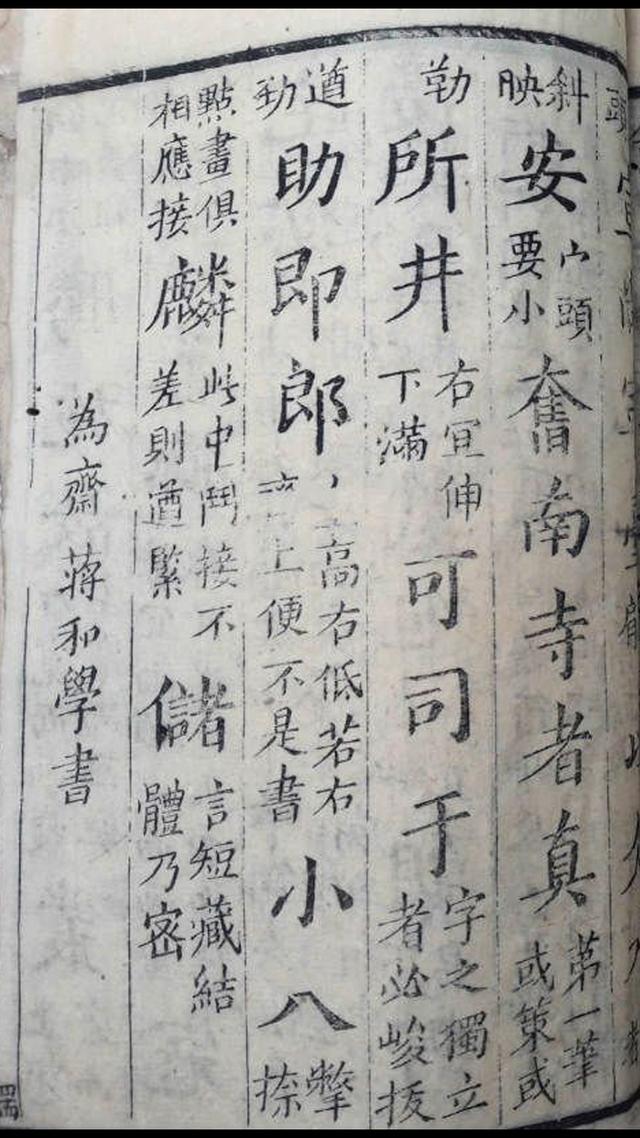 頭
斜映安宀頭要小奮南寺者真第一筆或策或
勒所井右宜伸下滿可司于字之獨立者必峻拔
遒勁助即郎高右低若右上便不是書小八撆捺
點畫俱相應接麟此中鬥接不差則遒緊儲言短藏結體乃密
為齋蔣和學書